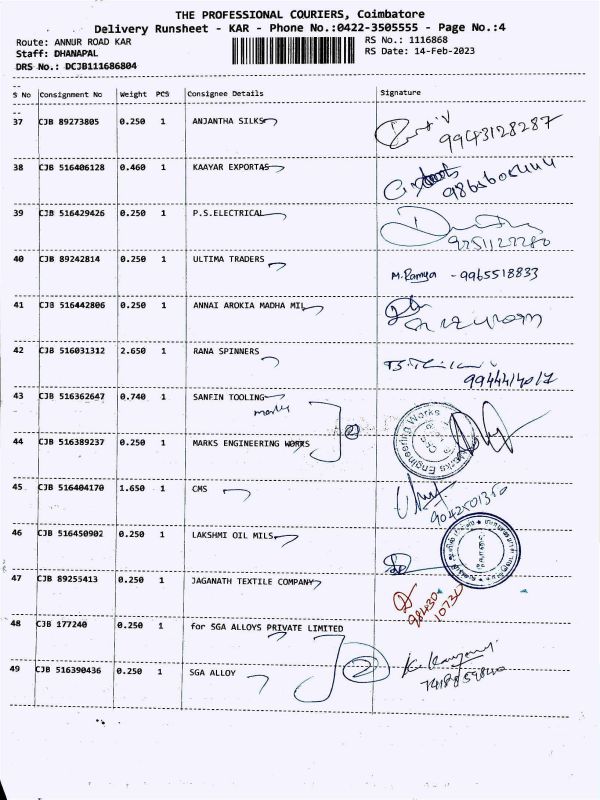 THE PROFESSIONAL COURIERS, Coimbatore
Delivery Runsheet - KAR - Phone No.:0422-3505555 - Page No.:4
Route: ANNUR ROAD KAR
Staff: DHANAPAL
DRS No.: DCJB111686804
RS No.: 1116868
RS Date: 14-Feb-2023
S No Consignment No Weight PCS Consignee Details Signature
37 CJB 89273805 0.250 1 ANJANTHA SILKS 9943128287
38 CJB 516406128 0.460 1 KAAYAR EXPORTAS
39 CJB 516429426 0.250 1 P.S.ELECTRICAL
40 CJB 89242814 0.250 1 ULTIMA TRADERS M.Ramya - 9965518833
41 CJB 516442806 0.250 1 ANNAI AROKIA MADHA MIL
42 CJB 516031312 2.650 1 RANA SPINNERS
43 CJB 516362647 0.740 1 SANFIN TOOLING
marks
2
44 CJB 516389237 0.250 1 MARKS ENGINEERING WORKS Marks Engineering Works
45 CJB 516404170 1.650 1 CMS 9042501350
46 CJB 516450902 0.250 1 LAKSHMI OIL MILS
47 CJB 89255413 0.250 1 JAGANATH TEXTILE COMPANY
48 CJB 177240 0.250 1 for SGA ALLOYS PRIVATE LIMITED
2
49 CJB 516390436 0.250 1 SGA ALLOY